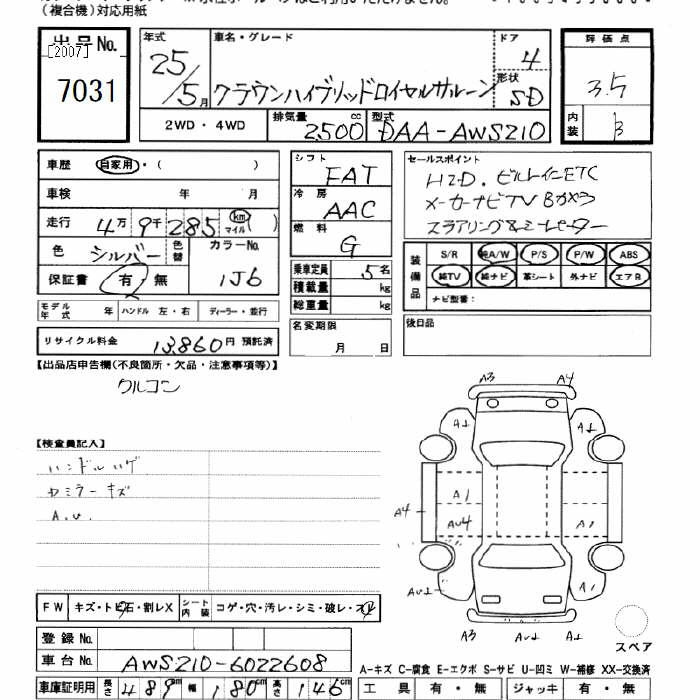 (複合機)対応用紙
出品No.
[2007]
7031
年式 車名・グレード ドア
25/5月 クラウンハイブリッドロイヤルサルーン 4
形状 SD
2WD・4WD 排気量 2500cc 型式 DAA-AWS210
評価点
3.5
内装 B
車歴 自家用・( )
車検 年 月
走行 4万9千285 km マイル( )
色 シルバー 色替 カラーNo.
保証書 有・無 1J6
モデル年式 年 ハンドル 左・右 ディーラー・並行
リサイクル料金 13,860円 預託済
シフト FAT
冷房 AAC
燃料 G
乗車定員 5名
積載量 kg
総重量 kg
名変期限
月 日
セールスポイント
HID.ビルトインETC
メーカーナビTVBカメラ
ステアリング&シートヒーター
装備品 S/R 純A/W P/S P/W ABS
純TV 純ナビ 革シート 外ナビ エアB
ナビ型番:
後日品
【出品店申告欄(不良箇所・欠品・注意事項等)】
クルコン
【検査員記入】
ハンドルハゲ
ヤミラーキズ
A.U.
A3 A4
A1 A1
A1
A4 AU4 A1
AU1 A1
A3 AU1 A1
FW キズ・トビ石・割レX シート内装 コゲ・穴・汚レ・シミ・破レ・スレ
スペア
登録No.
車台No. AWS210-6022608
A-キズ C-腐食 E-エクボ S-サビ U-凹ミ W-補修 XX-交換済
車庫証明用 長さ 489cm 幅 180cm 高さ 146cm
工具 有・無 ジャッキ 有・無